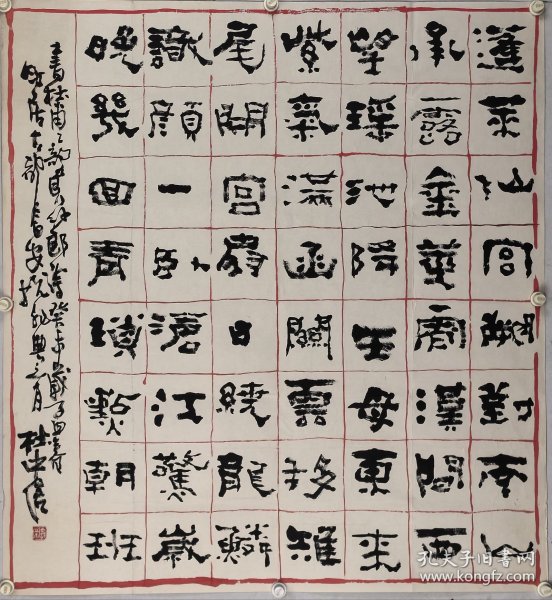 蓬萊仙宮闕對南山
承露金莖霄漢間西
望瑤池降王母東來
紫氣滿函關雲移雉
尾開宮扇日繞龍鱗
識顏一臥滄江驚歲
晚幾回青瑣點朝班
書杜甫之 癸未歲
居古都長安 之月 杜中信
孔夫子旧书网
www.kongfz.com